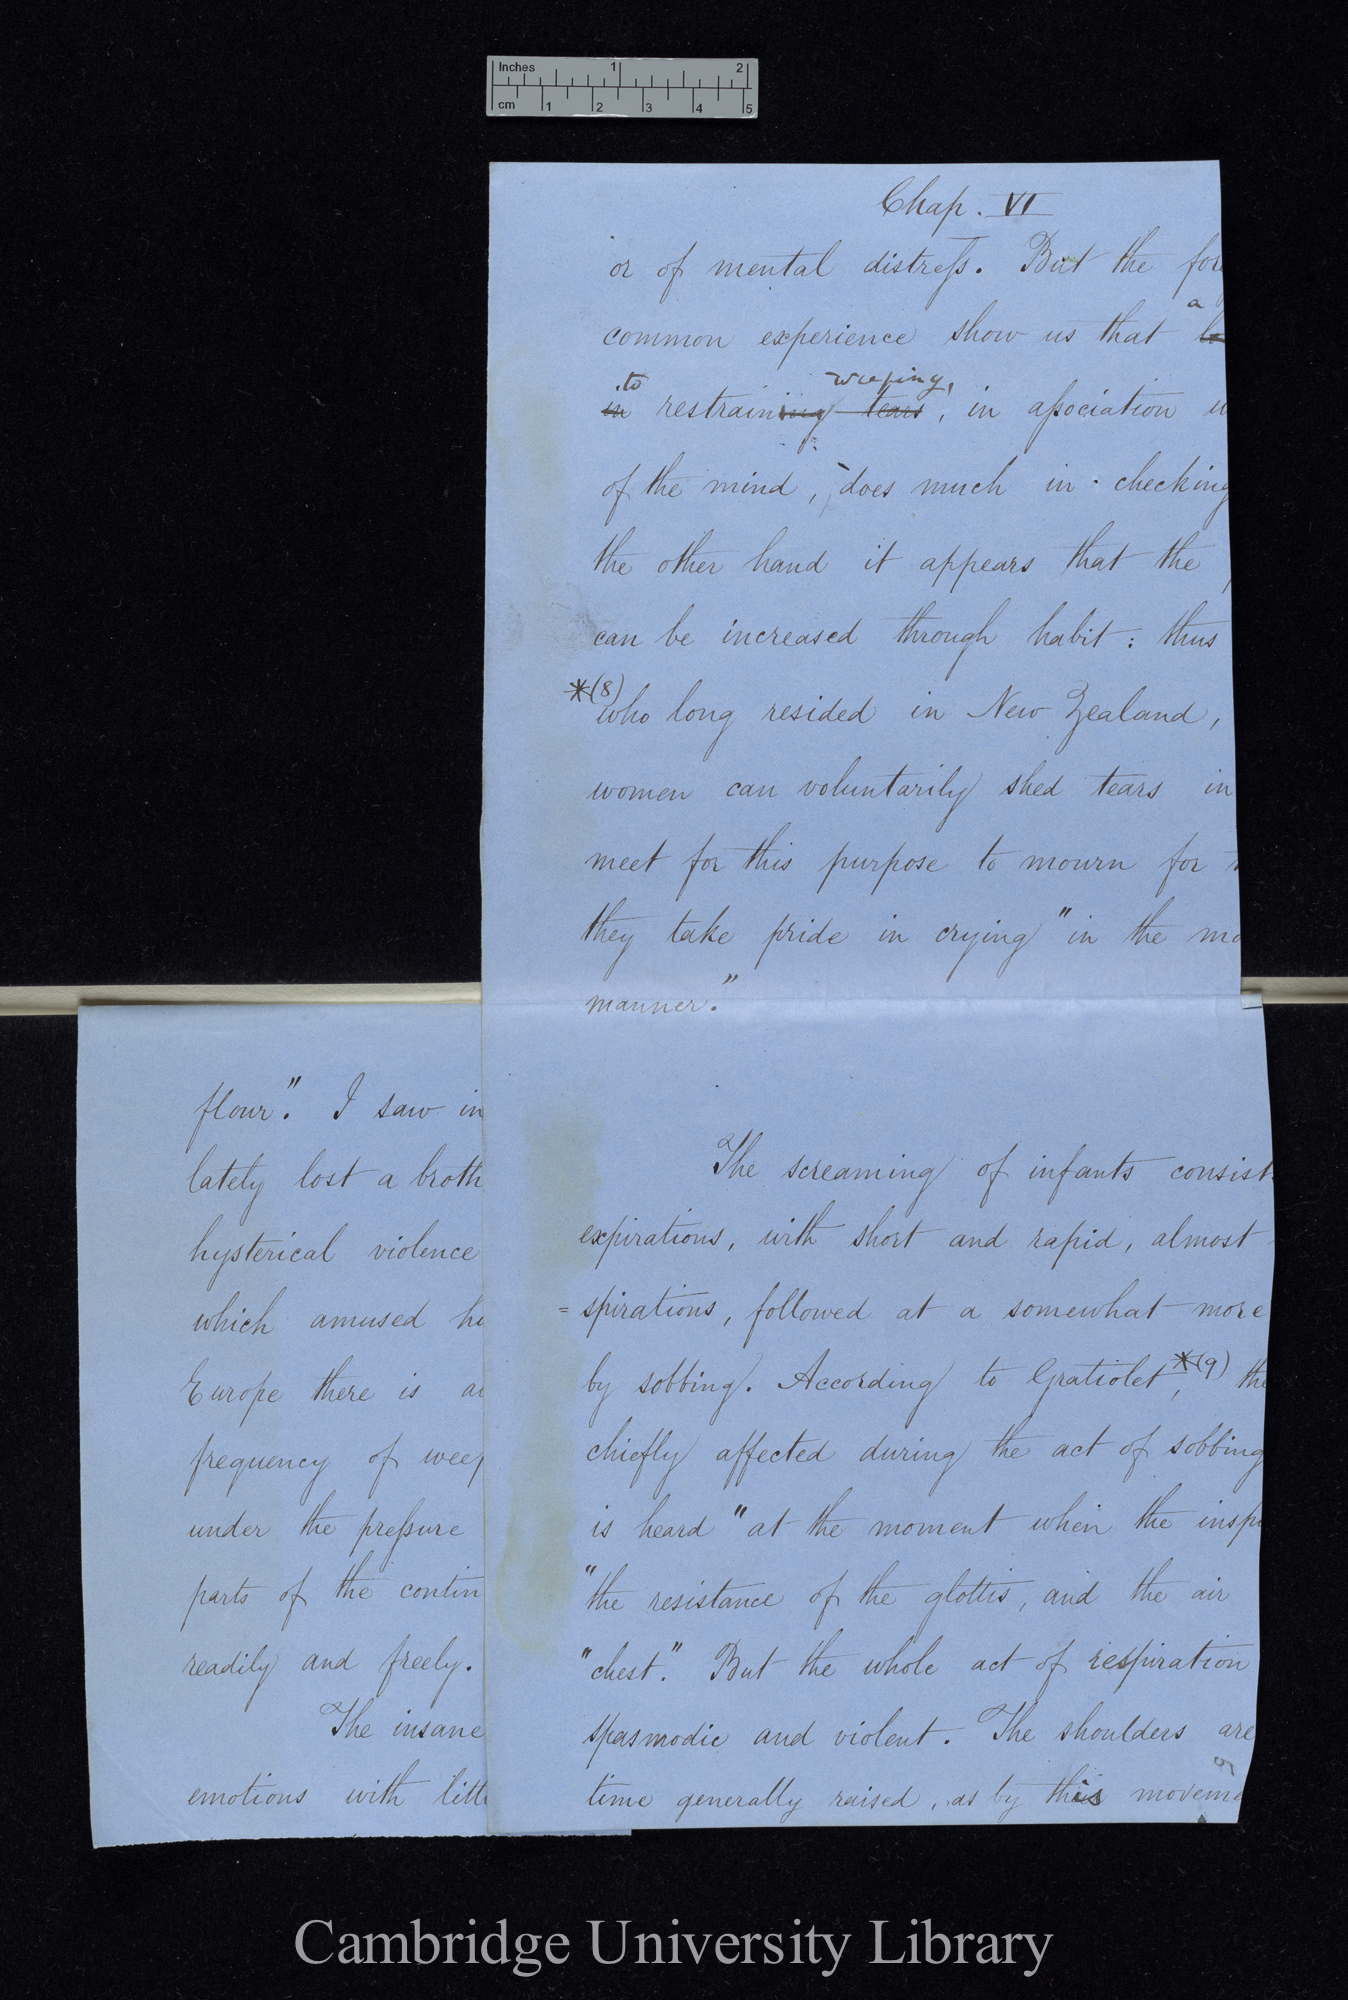 Inches 1 2
cm 1 2 3 4 5
Chap. VI
or of mental distreſs. But the for
a
common experience show us that
to weeping,
in restraining tears, in aſsociation
of the mind, does much in checking
the other hand it appears that the
can be increased through habit: thus
*(8)
who long resided in New Zealand,
women can voluntarily shed tears in
meet for this purpose to mourn for
they take pride in crying "in the mo
manner."
The screaming of infants consist
expirations, with short and rapid, almost
=spirations, followed at a somewhat more
by sobbing. According to Gratiolet,*(9) the
chiefly affected during the act of sobbing
is heard "at the moment when the inspi
"the resistance of the glottis, and the air
"chest." But the whole act of respiration
spasmodic and violent. The shoulders are
time generally raised, as by this moveme
flour." I saw in
lately lost a broth
hysterical violence
which amused he
Europe there is a
frequency of weep
under the preſsure
parts of the contin
readily and freely.
The insane
emotions with littl
Cambridge University Library